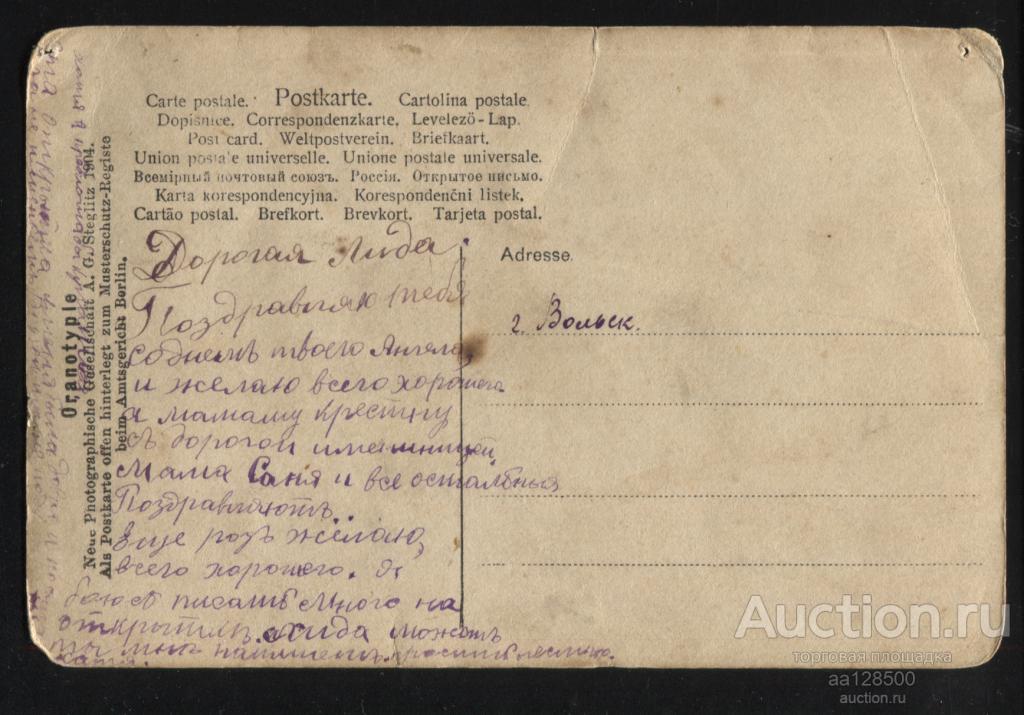 Carte postale. Postkarte. Cartolina postale.
Dopisnice. Correspondenzkarte. Levelező-Lap.
Post card. Weltpostverein. Briefkaart.
Union postale universelle. Unione postale universale.
Всемірный почтовый союзъ. Россія. Открытое письмо.
Karta korespondencyjna. Korespondenční listek.
Cartão postal. Brefkort. Brevkort. Tarjeta postal.
Adresse.
г. Вольск.
Дорогая Лида
Поздравляю тебя
со днемъ твоего Ангела,
и желаю всего хорошего
а мамашу крестну
съ дорогой именинницей
Мама Саня и все остальные
Поздравляютъ.
Еще розъ желаю,
всего хорошего. Я
боюсь писать много на
открытыхъ. Лида можетъ
ты мнѣ напишешь
Oranotypie
Neue Photographische Gesellschaft A. G. Steglitz 1904.
Als Postkarte offen hinterlegt zum Musterschutz-Registe
beim Amtsgericht Berlin.
Auction.ru
торговая площадка
aa128500
auction.ru